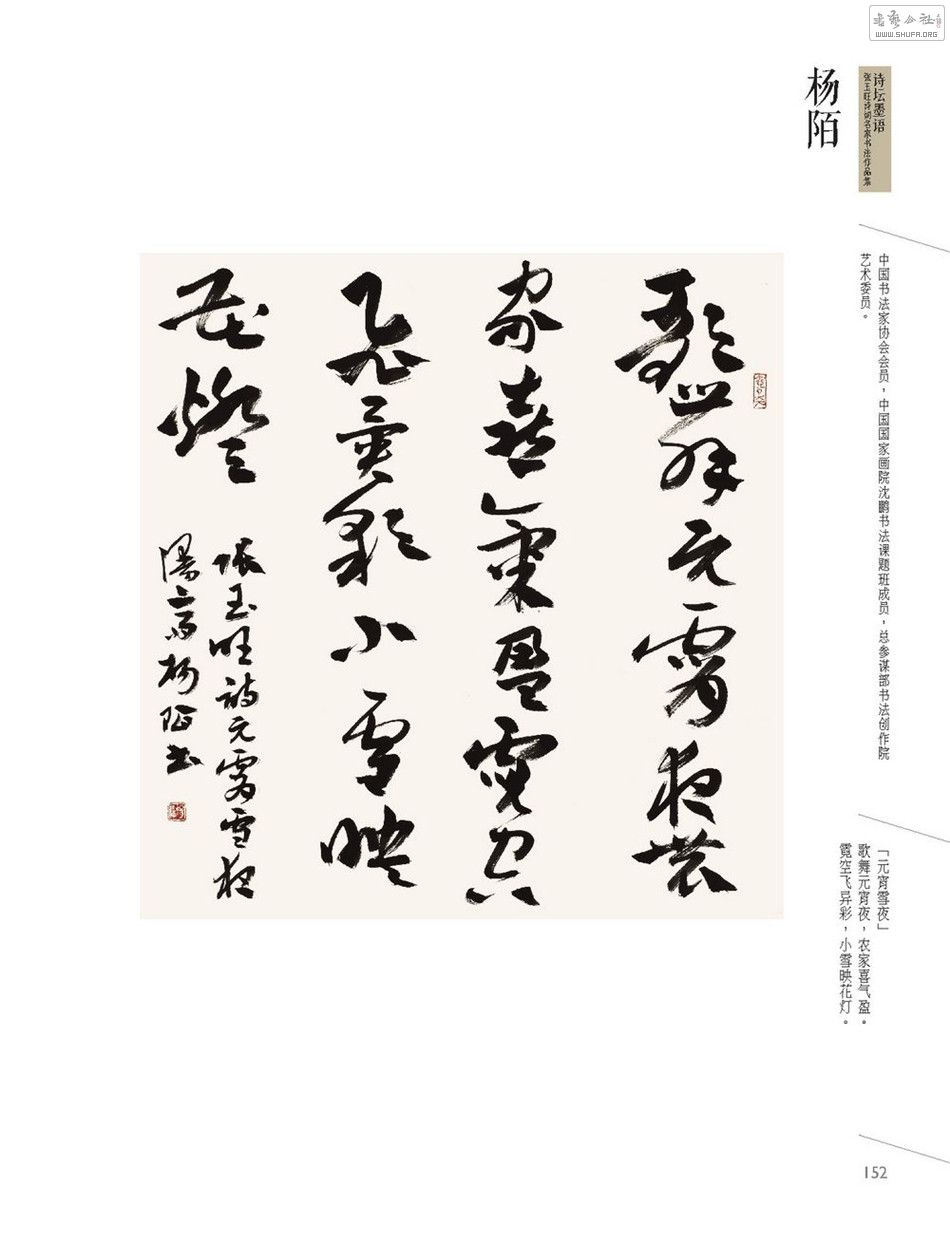 书艺公社
WWW.SHUFA.ORG
诗坛墨语
张玉旺诗词名家书法作品集
杨陌
中国书法家协会会员，中国国家画院沈鹏书法课题班成员，总参谋部书法创作院
艺术委员。
歌舞元宵夜农
家喜气盈霓空
飞异彩小雪映
花燈
张玉旺诗元宵雪夜
杨陌书
「元宵雪夜」
歌舞元宵夜，农家喜气盈。
霓空飞异彩，小雪映花灯。
152